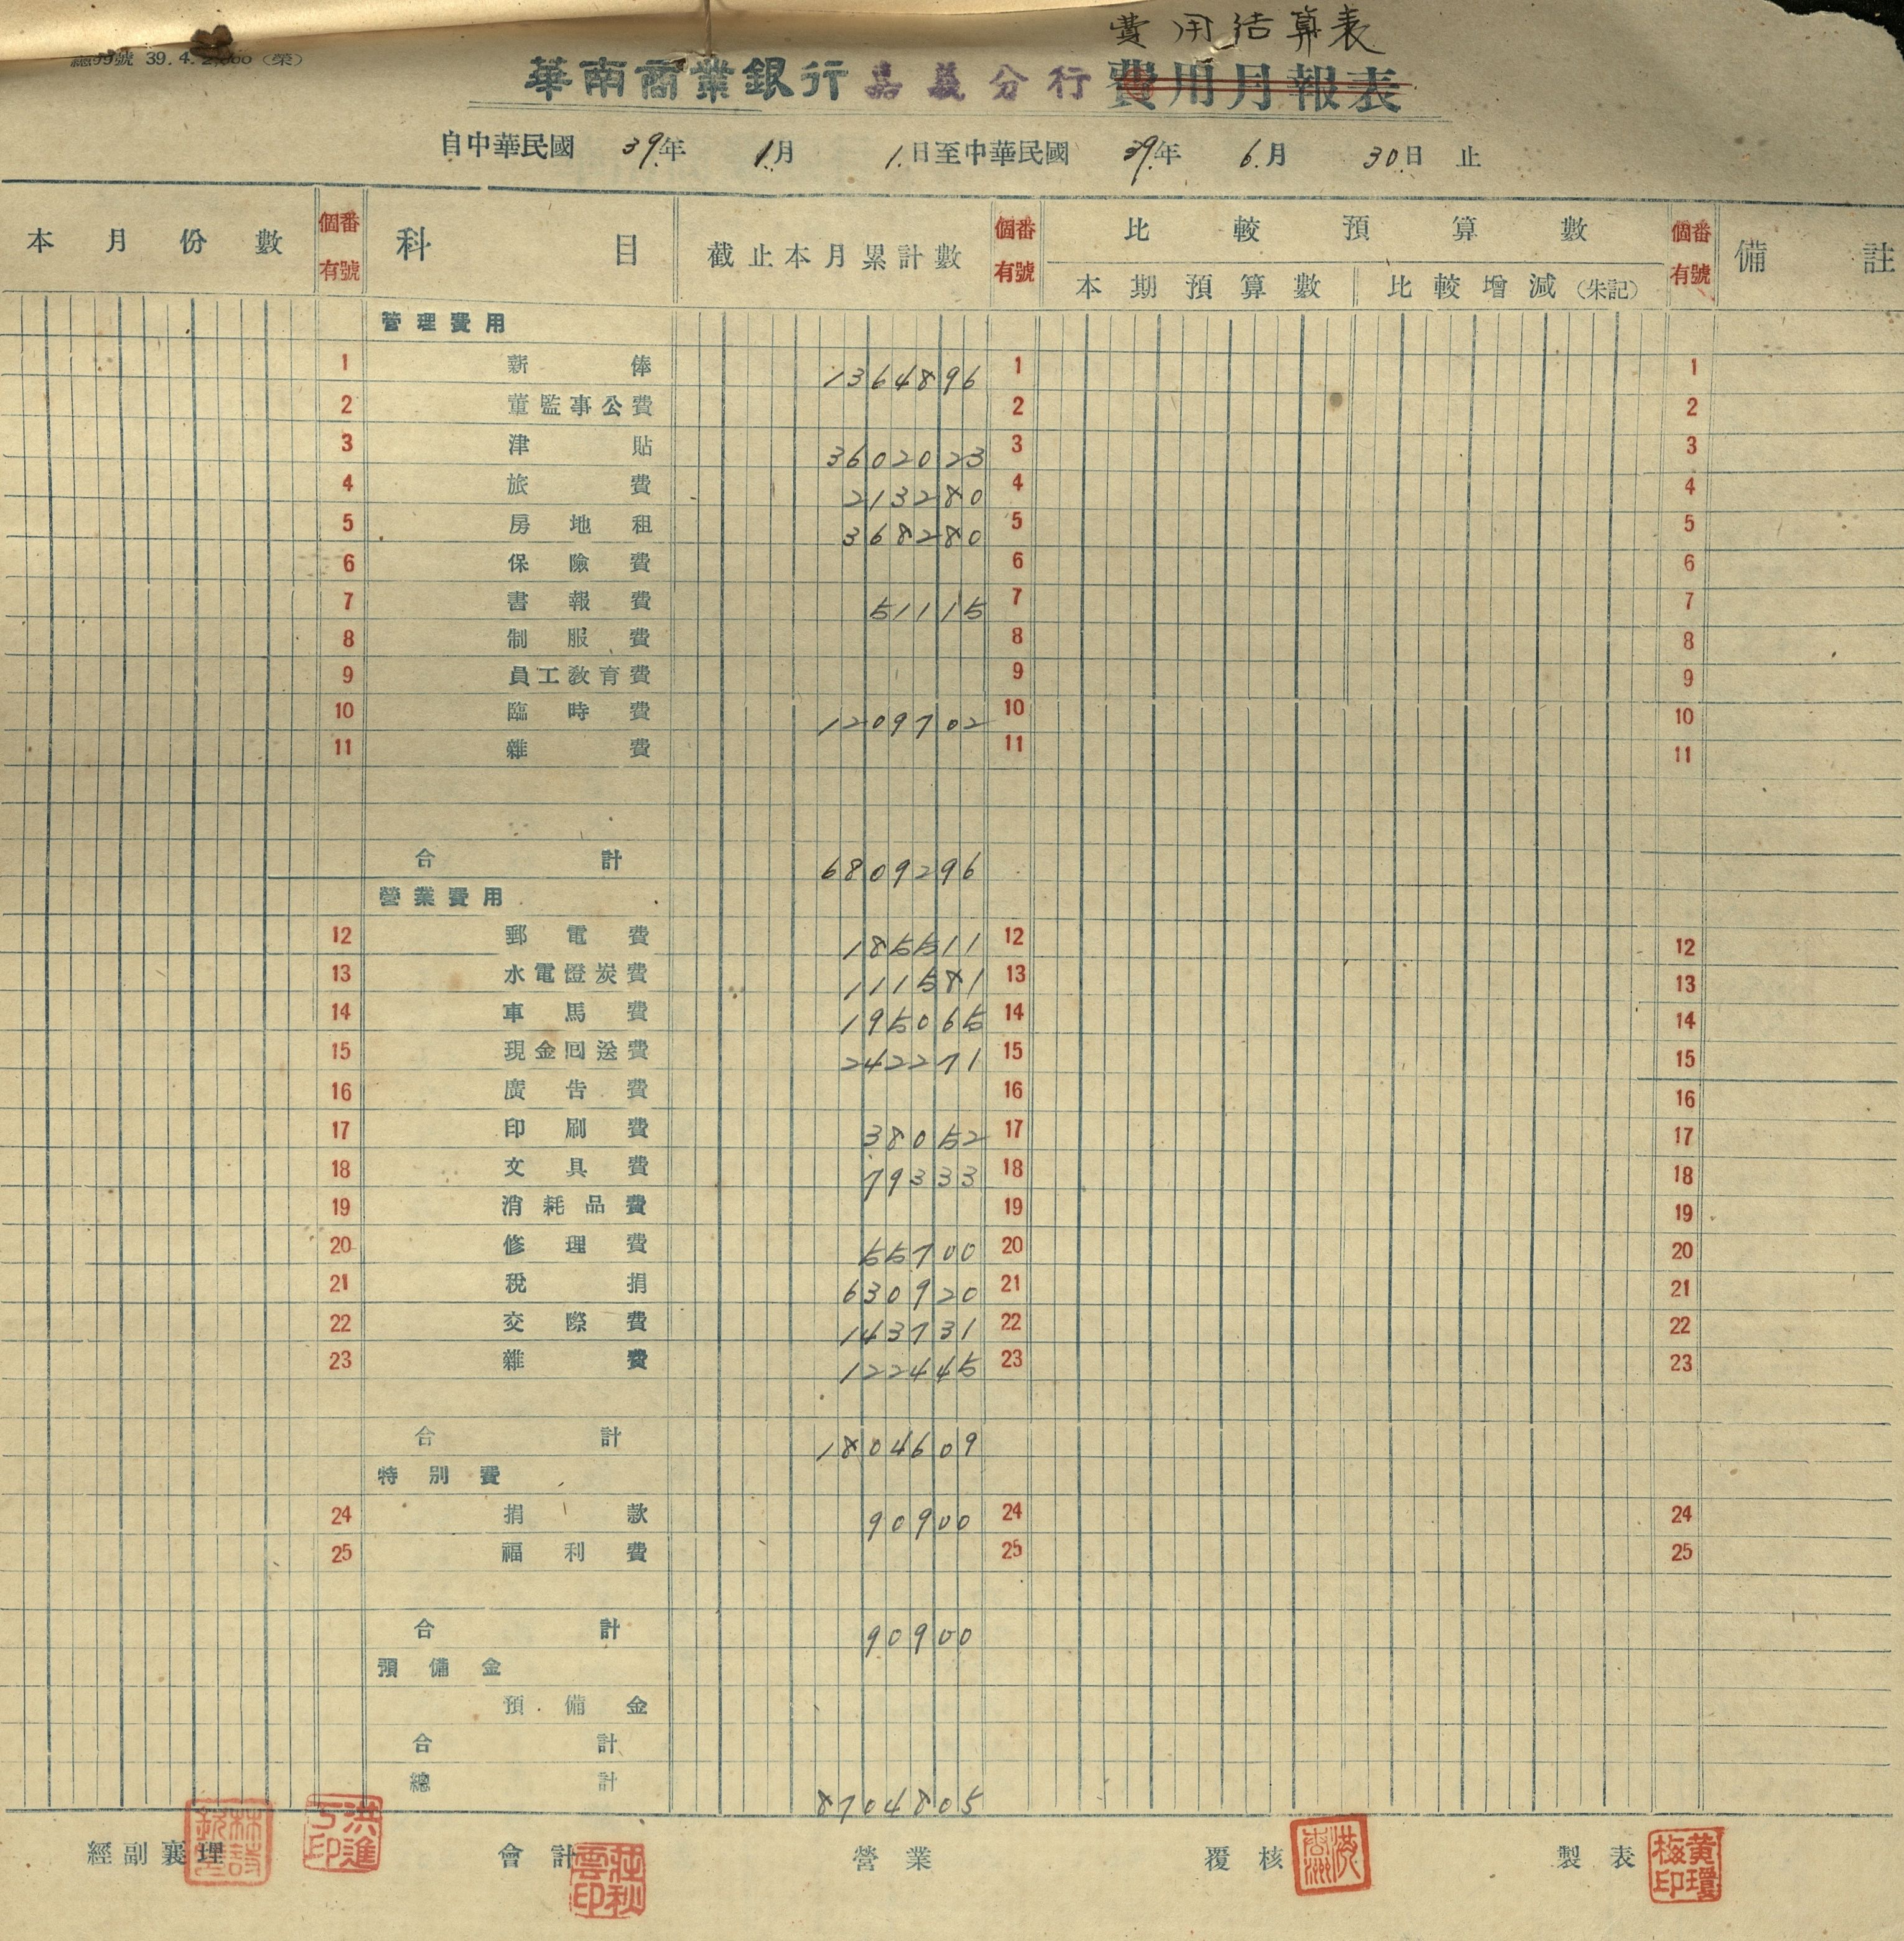 費用結算表
39.4.2,000（榮）
華南商業銀行 嘉義分行 費用月報表
自中華民國 39.年 1.月 1.日至中華民國 39.年 6.月 30.日 止
本月份數 個有 番號 科目 截止本月累計數 個有 番號 比較預算數 個有 番號 備註
本期預算數 比較增減（朱記）
管理費用
1 薪俸 1364896 1 1
2 董監事公費 2 2
3 津貼 3602023 3 3
4 旅費 213280 4 4
5 房地租 368280 5 5
6 保險費 6 6
7 書報費 51115 7 7
8 制服費 8 8
9 員工教育費 9 9
10 臨時費 1209702 10 10
11 雜費 11 11
合計 6809296
營業費用
12 郵電費 185511 12 12
13 水電燈炭費 111581 13 13
14 車馬費 195065 14 14
15 現金回送費 242271 15 15
16 廣告費 16 16
17 印刷費 38052 17 17
18 文具費 79333 18 18
19 消耗品費 19 19
20 修理費 55700 20 20
21 稅捐 630920 21 21
22 交際費 143731 22 22
23 雜費 122445 23 23
合計 1804609
特別費
24 捐款 90900 24 24
25 福利費 25 25
合計 90900
預備金
預備金
合計
總計 8704805
經副襄理 會計 莊秋雲印 營業 覆核 製表 黃瓊梅印